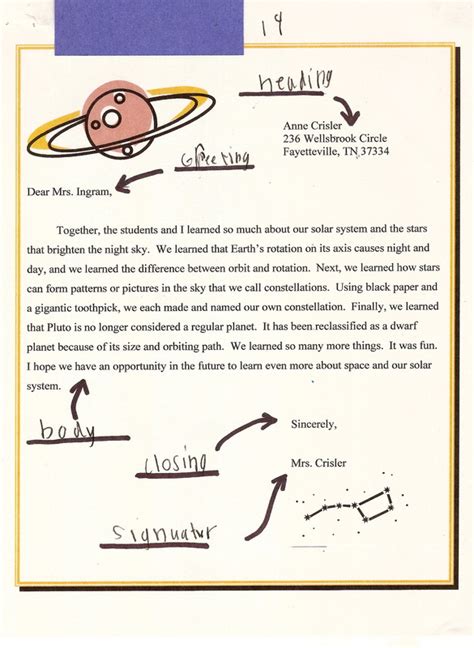 14
heading
Anne Crisler
236 Wellsbrook Circle
Fayetteville, TN 37334
Greeting
Dear Mrs. Ingram,
Together, the students and I learned so much about our solar system and the stars
that brighten the night sky. We learned that Earth's rotation on its axis causes night and
day, and we learned the difference between orbit and rotation. Next, we learned how stars
can form patterns or pictures in the sky that we call constellations. Using black paper and
a gigantic toothpick, we each made and named our own constellation. Finally, we learned
that Pluto is no longer considered a regular planet. It has been reclassified as a dwarf
planet because of its size and orbiting path. We learned so many more things. It was fun.
I hope we have an opportunity in the future to learn even more about space and our solar
system.
body
Sincerely,
closing
Mrs. Crisler
signuatur